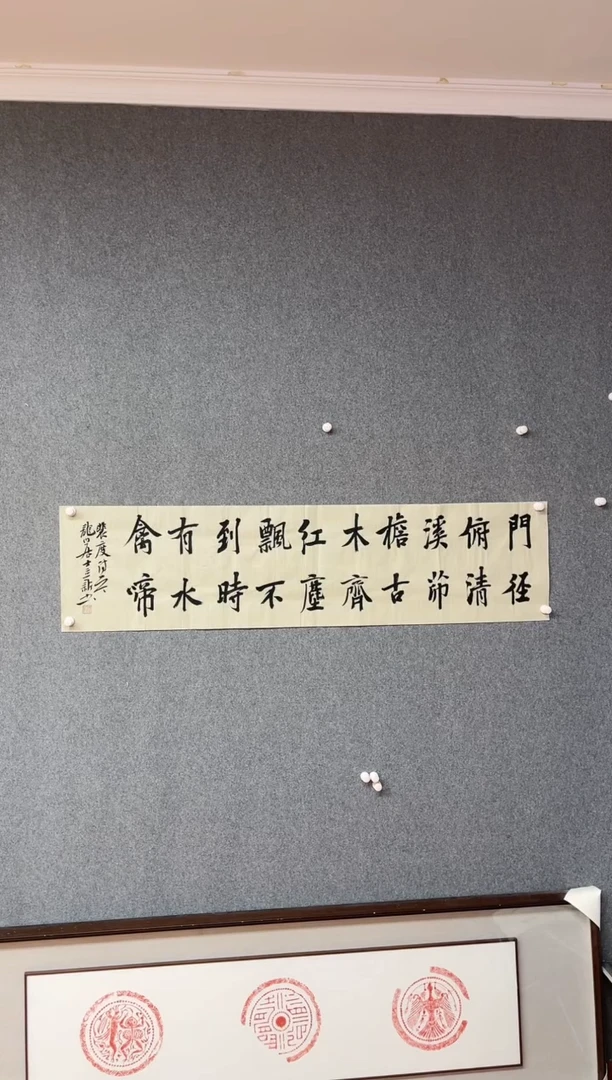 門徑
俯清
溪茆
檐古
木齊
紅塵
飄不
到時
有水
禽啼
裴度詩
居士